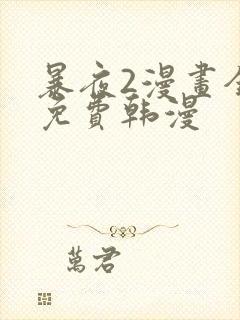 暴夜2漫畫全
免費韩漫
萬君